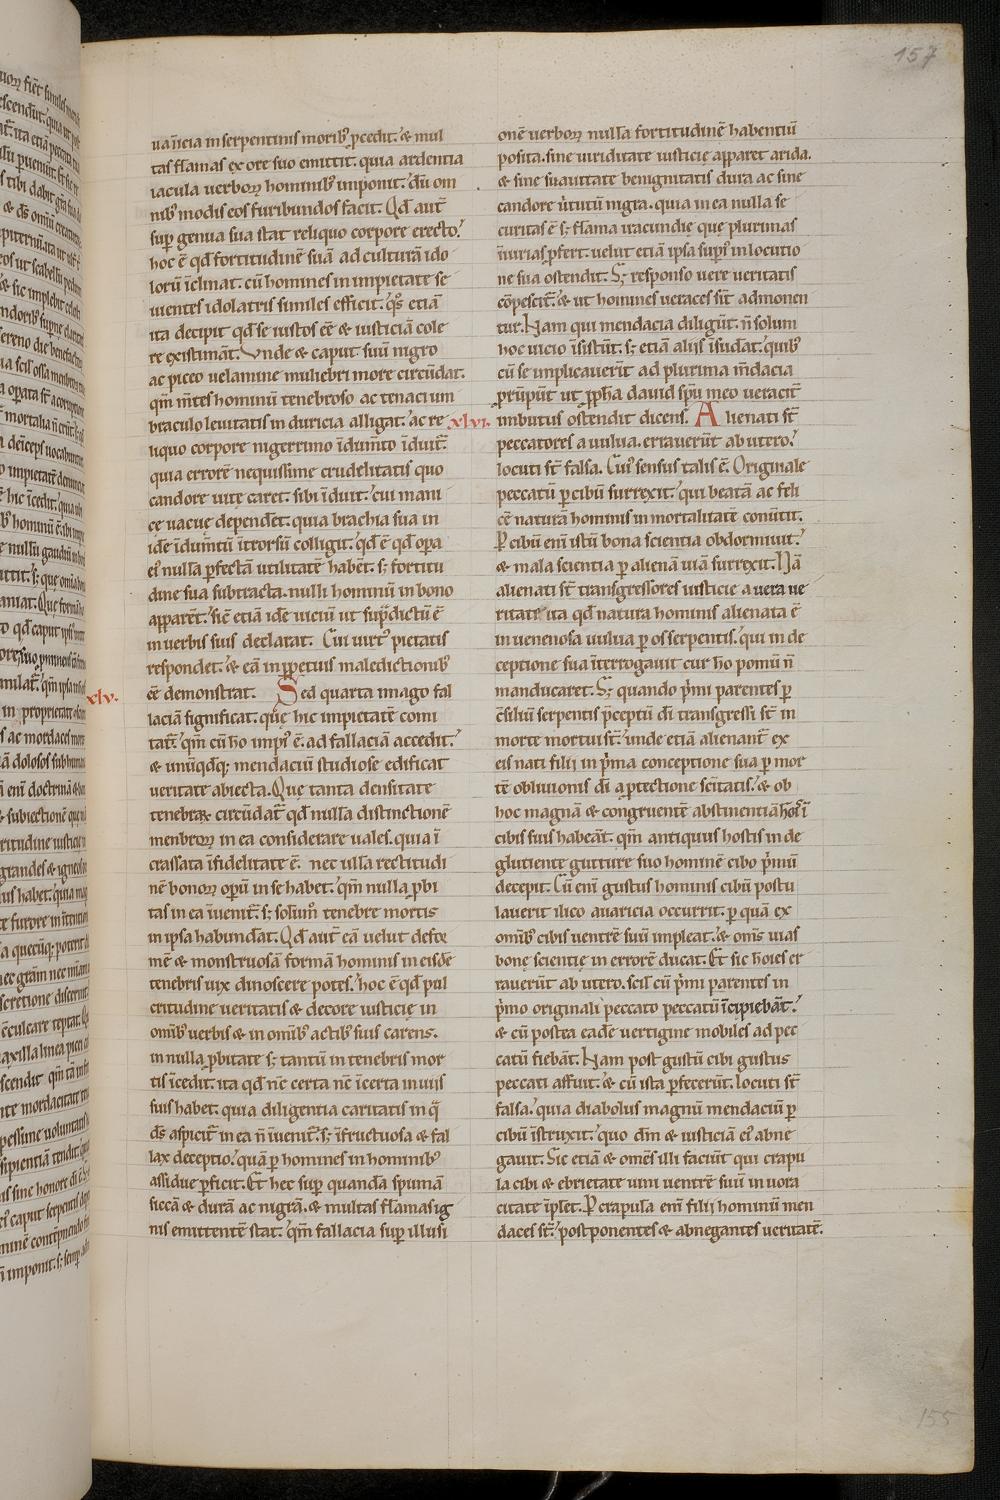 157
ua īıcia in serpentinis moribꝰ ꝓcedit. & mul
tas flāmas ex ore suo emittit. quia ardentia
iacula uerboꝝ hominibꝰ imponit. dū om
nibꝰ modis eos furibundos facit. Qd̄ aut̄
sup̄ genua sua stat reliquo corpore erecto.
hoc ē qd̄ fortitudinē suā ad culturā ido
lorū īclinat. cū homines in impietate se
uientes idolatris similes efficit. q̄s etiā
ita decipit qd̄ se iustos eē & iusticiā cole
re existimāt. Vnde & caput suū nigro
ac piceo uelamine muliebri more circūdat.
qm̄ m̄tes hominū tenebroso ac tenaci um
braculo leuitatis in duricia alligat. ac re
liquo corpore nigerrimo īdum̄to īduit̄.
quia errorē nequissime crudelitatis quo
candore uite caret. sibi īduit. cui mani
ce uacue dependēt. quia brachia sua in
idē īdumtū ītrorsū colligit. qd̄ ē qd̄ opa
eiꝰ nulla ꝑfectā utilitatē habēt. s; fortitu
dine sua subtracta. nulli hominū in bono
apparēt. sic etiā idē uiciū ut sup̄dictū ē
in uerbis suis declarat. Cui uirtꝰ pietatis
respondet. & eā in īpetuis maledictionibꝰ
eē demonstrat. Sed quarta imago fal
xlv.
laciā significat. quē hic impietatē comi
tat̄. qm̄ cū ho impiꝰ ē. ad fallaciā accedit.
& unūqd̄q; mendaciū studiose edificat
ueritate abiecta. Que tanta densitate
tenebraꝝ circūdat̄ qd̄ nulla distinctionē
menbroꝝ in ea considerare uales. quia ī
crassata īfidelitate ē. nec ulla rectitudi
nē bonoꝝ opū in se habet. qm̄ nulla ꝓbi
tas in ea īuenit̄. s; solūm tenebre mortis
in ipsa habundat. Qd̄ aut̄ eā uelut defor
mē & monstruosā formā hominis in eisdē
tenebris uix dinoscere potes. hoc ē qd̄ pul
critudine ueritatis & decore iusticię in
omībꝰ uerbis & in omībꝰ actibꝰ suis carens.
in nulla ꝓbitate s; tantū in tenebris mor
tis īcedit. ita qd̄ nc̄ certa nc̄ īcerta in uiis
suis habet. quia diligentia caritatis in q̄
ds̄ aspicit̄ in ea n̄ īuenit̄. s; īfructuosa & fal
lax deceptio. quā ꝑ homines in hominibꝰ
assidue ꝑficit. Et hec sup̄ quandā spumā
siccā & durā ac nigrā. & multas flāmas ig
nis emittentē stat. qm̄ fallacia sup̄ illusi
onē uerboꝝ nulla fortitudinē habentiū
posita. sine uiriditate iusticie apparet arida.
& sine suauitate benignitatis dura ac sine
candore ūtutū nigra. quia in ea nulla se
curitas ē s; flāma iracundie que plurimas
iīurias ꝓfert. uelut etiā ipsa supꝰ in locutio
ne sua ostendit. S; responso uere ueritatis
cōpescit̄. & ut homines ueraces sīt admonen
tur. Nam qui mendacia diligūt. n̄ solum
hoc uicio īsistūt. s; etiā aliis īsudāt. quibꝰ
cū se implicauerīt ad plurima m̄dacia
prūpūt ut ꝓph̄a dauid spū meo ueracit̄
xlvi.
imbutus ostendit dicens. Alienati st̄
peccatores a uulua. errauerūt ab utero.
locuti st̄ falsa. Cuiꝰ sensus talis ē. Originale
peccatū ꝑ cibū surrexit. qui beatā ac feli
cē naturā hominis in mortalitatē conūtit.
P cibū enī istū bona scientia obdormiuit.
& mala scientia ꝑ alienā uiā surrexit. Nā
alienati st̄ transgressores iusticie a uera ue
ritate ita qd̄ natura hominis alienata ē
in uenenosa uulua ꝑ os serpentis. qui in de
ceptione sua īterrogauit cur ho pomū n̄
manducaret. S; quando p̄mi parentes ꝑ
cōsiliū serpentis p̄ceptū dī transgressi st̄ in
morte mortui st̄. unde etiā alienant̄ ex
eis nati filii in p̄ma conceptione sua ꝓ mor
tē obliuionis dī a ꝓtectione scītatis. & ob
hoc magnā & congruentē abstinentiā hoīes ī
cibis suis habeāt. qm̄ antiquus hostis in de
glutiente gutture suo hominē cibo p̄mū
decepit. Cū enī gustus hominis cibū postu
lauerit ilico auaricia occurrit. ꝑ quā ex
omībꝰ cibis uentrē suū impleat. & omīs uias
bonę scientię in errorē ducat. Et sic hoīes er
rauerūt ab utero. scil cū p̄mi parentes in
p̄mo originali peccato peccatū īcipiebāt.
& cū postea eadē uertigine mobiles ad pec
catū fiebāt. Nam post gustū cibi gustus
peccati affuit. & cū ista ꝑfecerūt. locuti st̄
falsa. quia diabolus magnū mendaciū ꝑ
cibū īstruxit. quo dīm & iusticiā eiꝰ abne
gauit. Sic etiā & omēs illi faciūt qui crapu
la cibi & ebrietate uini uentrē suū in uora
citate īplēt. P crapula enī filii hominū men
daces st̄. postponentes & abnegantes ueritatē.
155